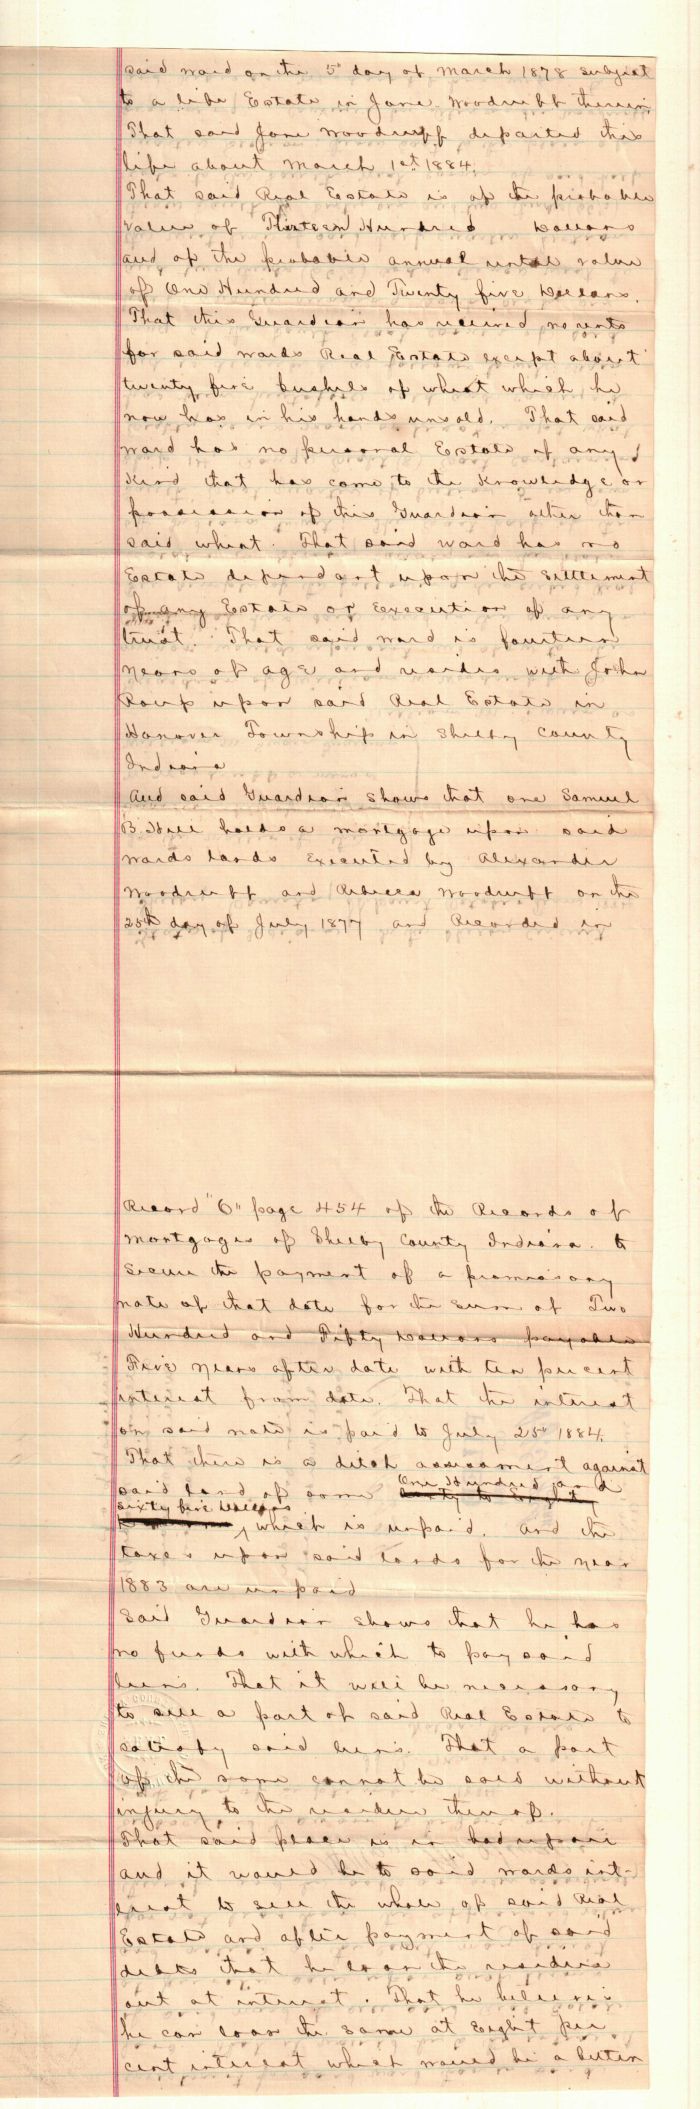 said ward on the 5" day of March 1878 subject
to a life Estate in Jane Woodruff therein
That said Jane Woodruff departed this
life about March 1st 1884.
That said Real Estate is of the probable
value of Thirteen Hundred Dollars
and of the probable annual rental value
of One Hundred and Twenty five Dollars.
That this Guardian has received no rents
for said wards Real Estate except about
twenty five bushels of wheat which he
now has in his hands unsold. That said
ward has no personal Estate of any
Kind that has come to the Knowledge or
possession of this Guardian other than
said wheat. That said ward has no
Estate dependent upon the settlement
of any Estate or execution of any
trust. That said ward is fourteen
years of age and resides with John
Roup upon said Real Estate in
Hanover Township in Shelby County
Indiana
And said Guardian shows that one Samuel
B. Hill holds a mortgage upon said
wards lands Executed by Alexander
Woodruff and Rebecca Woodruff on the
25th day of July 1877 and Recorded in
Record "6" page 454 of the Records of
mortgages of Shelby County Indiana. to
secure the payment of a promissory
note of that date for the sum of Two
Hundred and Fifty Dollars payable
Five years after date with ten per cent
interest from date. That the interest
on said note is paid to July 25" 1884.
That there is a ditch assessment against
said land of some One Hundred and
sixty five Dollars
, which is unpaid. and the
taxes upon said lands for the year
1883 are unpaid
Said Guardian shows that he has
no funds with which to pay said
liens. That it will be necessary
to sell a part of said Real Estate to
satisfy said liens. That a part
of the same cannot be sold without
injury to the residue thereof.
That said place is in bad repair
and it would be to said wards int-
erest to sell the whole of said Real
Estate and after payment of said
debts that he loan the residue
out at interest. That he believes
he can loan the same at Eight per
cent interest which would be a better